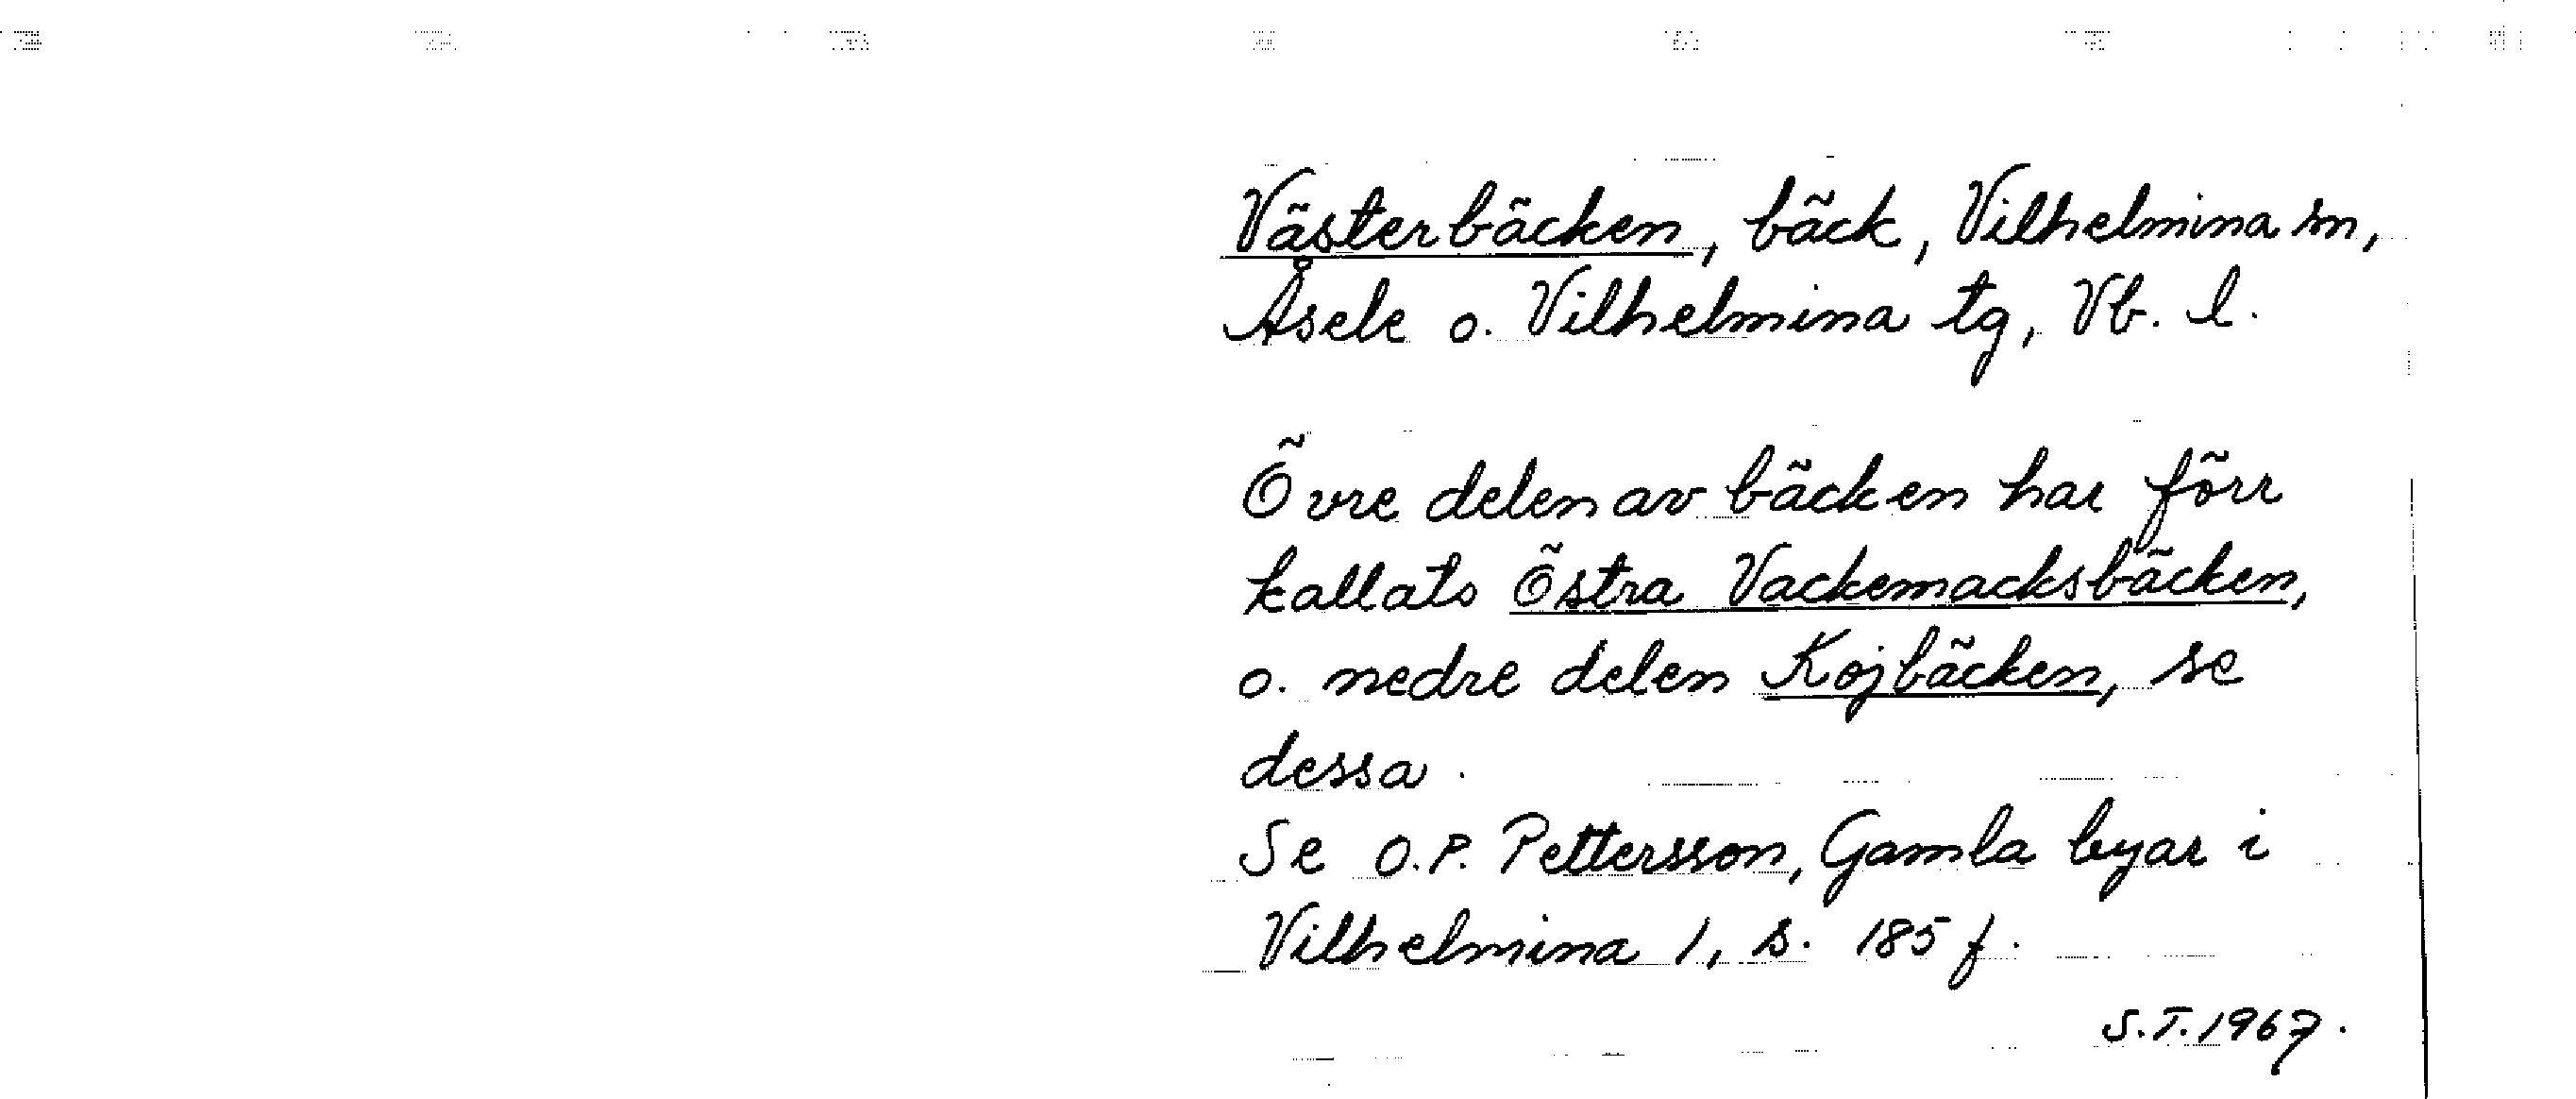 Västerbäcken, bäck, Vilhelmina sn,
Åsele o. Vilhelmina tg, Vb. l.
Övre delen av bäcken har förr
kallats Östra Vackemacksbäcken,
o. nedre delen Kojbäcken, se
dessa.
Se O.P. Pettersson, Gamla byar i
Vilhelmina 1, s. 185 f.
S.T. 1967.